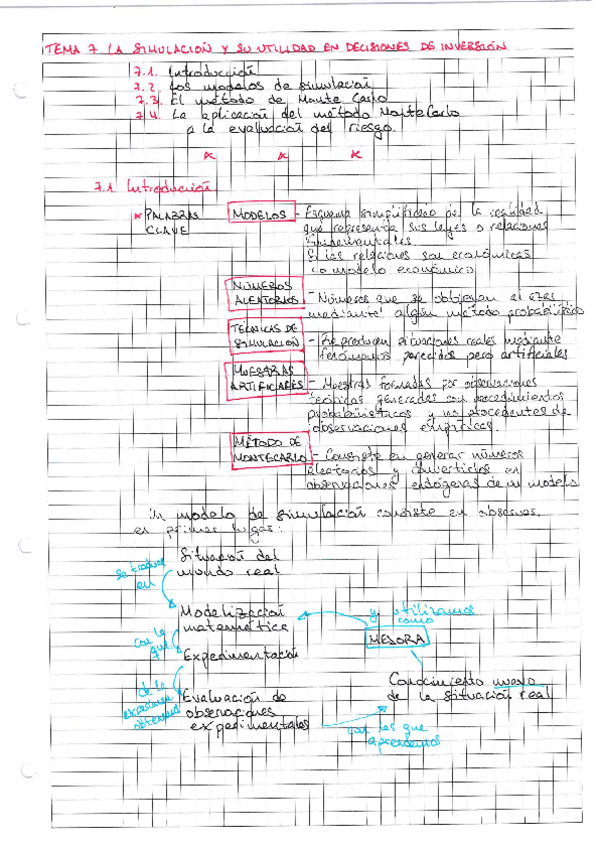 TEMA 7 LA SIMULACIÓN Y SU UTILIDAD EN DECISIONES DE INVERSIÓN
7.1. Introducción
7.2. Los modelos de simulación
7.3. El método de Monte Carlo
7.4. La aplicación del método MonteCarlo
a la evaluación del riesgo.
7.1 Introducción
* PALABRAS
CLAVE
MODELOS - Esquema simplificado de la realidad
que representa sus leyes o relaciones
fundamentales.
Si las relaciones son económicas
modelo económico
NÚMEROS
ALEATORIOS - Números que se obtienen al azar
mediante algún método probabilístico
TÉCNICAS DE
SIMULACIÓN - Reproducen situaciones reales mediante
fenómenos parecidos pero artificiales
MUESTRAS
ARTIFICIALES - Muestras formadas por observaciones
teóricas generadas con procedimientos
probabilísticos y no procedentes de
observaciones empíricas.
MÉTODO DE
MONTECARLO - Consiste en generar números
aleatorios y convertirlos en
observaciones endógenas de un modelo
Un modelo de simulación consiste en observar,
en primer lugar:
Situación del
mundo real
se traduce
en
Modelización
matemática
y utilizamos
como
MEJORA
con la
que
Experimentación
Conocimiento nuevo
de la situación real
de la
obtenemos
Evaluación de
observaciones
experimentales
con las que
aprendemos